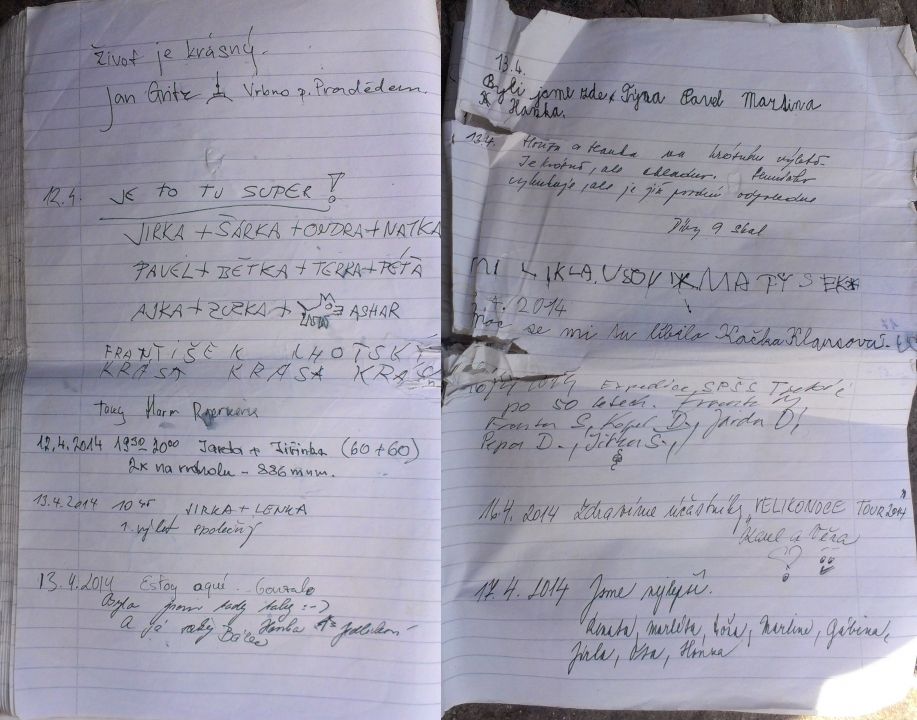 život je krásný.
Jan Gritz Vrbno p. Pradědem.
12.4. JE TO TU SUPER!
JIRKA + ŠÁRKA + ONDRA + NATKA
PAVEL + BĚTKA + TERKA + PÉŤA
AJKA + ZUZKA + ASHAR
FRANTIŠEK LHOTSKÝ
KRÁSA KRÁSA KRÁS
12.4.2014 1930-2000 Jarda + Jiřinka (60+60)
2x na vrcholu - 836 m n.m.
13.4.2014 10 45 JIRKA + LENKA
1. výlet společný
13.4.2014 Estoy aquí. Gonzalo
Byla jsem tady taky :-)
A já taky Hanka
13.4.
Byli jsme zde, Týna Pavel Martina
Hanka.
13.4. Honza a Hanka na krásném výletě.
Je krásně, ale chladno. Sluníčko
vykukuje, ale je již pozdní odpoledne
Díky 9 skal
MIKLAUSOVI MATÝSEK
2014
moc se mi tu líbilo Kačka Klausová
2014 Expedice SPŠS
po 50 letech.
Franta S, D, Jarda O,
Pepa D., Jitka S.,
16.4. 2014 Zdravíme účastníky "VELIKONOCE TOUR 2014"
Karel a Věra
17.4. 2014 Jsme nejlepší.
Renata, Markéta, Bára, Martina, Gábina,
Jirka, Ota, Honza